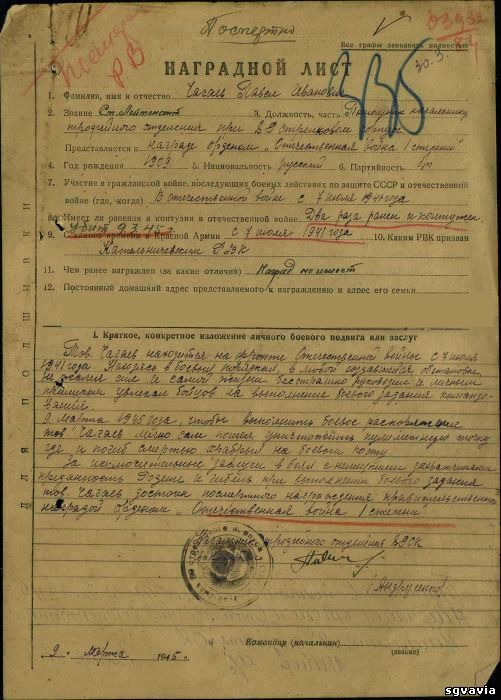 Посмертно
03932
84
30.3.
Все графы заполнять полностью
РВ
НАГРАДНОЙ ЛИСТ
335
1. Фамилия, имя и отчество Чагаев Павел Иванович
2. Звание Ст. Лейтенант 3. Должность, часть Помощник начальника
трофейного отделения при стрелковом
Представляется к награде орденом „Отечественная война I степени“
4. Год рождения 1909 5. Национальность русский 6. Партийность бп
7. Участие в гражданской войне, последующих боевых действиях по защите СССР и отечественной
войне (где, когда) В отечественной войне с 7 июля 1941 года
8. Имеет ли ранения и контузии в отечественной войне. Два раза ранен и контужен.
убит 9.3.45г
9. С какого времени в Красной Армии с 7 июля 1941 года 10. Каким РВК призван
Котельническим РВК
11. Чем ранее награжден (за какие отличия) Наград не имеет
12. Постоянный домашний адрес представляемого к награждению и адрес его семьи
I. Краткое, конкретное изложение личного боевого подвига или заслуг
Тов. Чагаев находится на фронте Отечественной войны с 7 июля
1941 года. Находясь в боевых порядках, в любой создавшейся обстановке,
не жалея сил и самой жизни бесстрашно руководил и личным
примером увлекал бойцов на выполнение боевого задания командо-
вания.
9 марта 1945 года, чтобы выполнить боевое распоряжение
тов. Чагаев лично сам пошел уничтожать пулеметную точку
где и погиб смертью храбрых на боевом посту.
За исключительные заслуги в боях с немецкими захватчиками
преданность Родине и гибель при выполнении боевого задания
тов. Чагаев достоин посмертного награждения правительственной
наградой орденом „Отечественная война I степени“
Начальник трофейного отделения
(Андрущенко)
Командир (начальник)
(звание)
9 „ марта 1945 г.
ДЛЯ ПОДШИВКИ
sgvavia